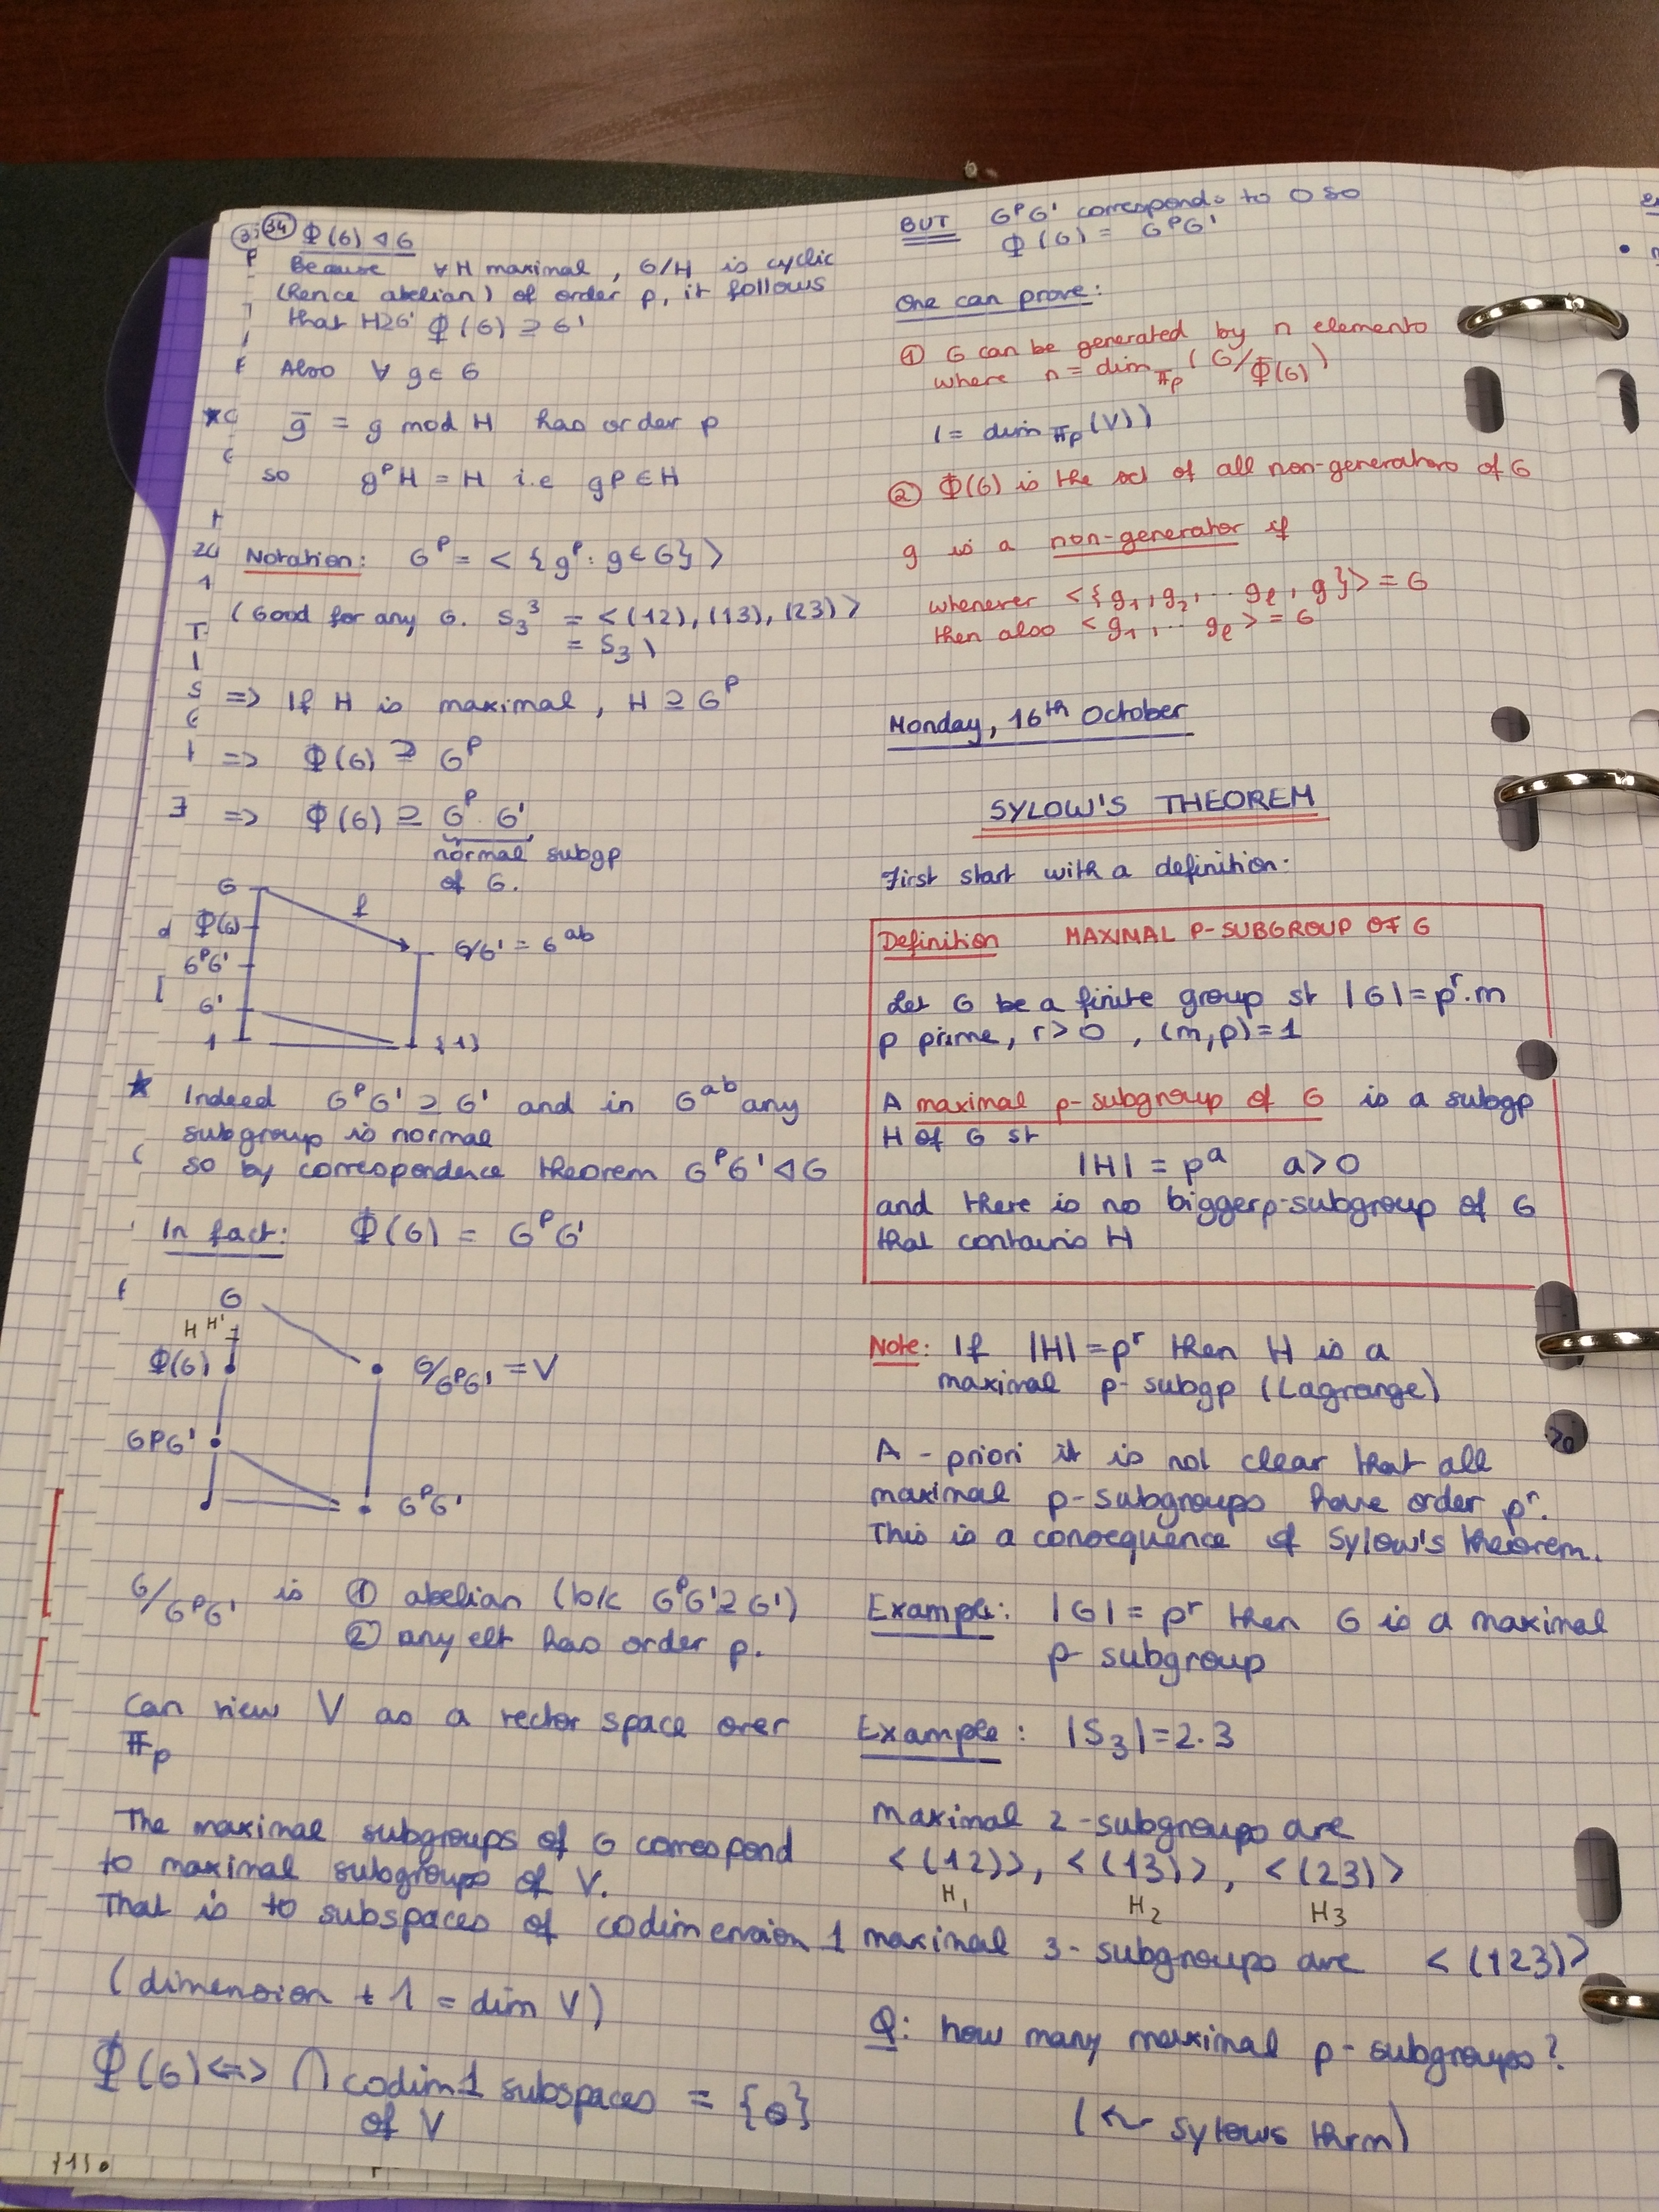 34 Φ(G) ◁ G
Because ∀ H maximal, G/H is cyclic
(hence abelian) of order p, it follows
that H⊇G' Φ(G) ⊇ G'
Also ∀ g ∈ G
g̅ = g mod H has order p
so g^p H = H i.e g^p ∈ H
Notation: G^p = < { g^p : g ∈ G } >
(Good for any G. S_3^3 = <(12), (13), (23)>
= S_3)
=> If H is maximal, H ⊇ G^p
=> Φ(G) ⊇ G^p
=> Φ(G) ⊇ G^p . G'
normal subgp
of G.
G
f
Φ(G)
G/G' = G^ab
G^pG'
G'
1
{1}
★ Indeed G^pG' ⊇ G' and in G^ab any
subgroup is normal
so by correspondence theorem G^pG' ◁ G
In fact: Φ(G) = G^pG'
G
H H'
Φ(G)
G/G^pG' = V
G^pG'
G^pG'
G/G^pG' is ① abelian (b/c G^pG' ⊇ G')
② any elt has order p.
Can view V as a vector space over
𝔽_p
The maximal subgroups of G correspond
to maximal subgroups of V.
That is to subspaces of codimension 1
(dimension + 1 = dim V)
Φ(G) <=> ⋂ codim 1 subspaces = {0}
of V
BUT G^pG' corresponds to 0 so
Φ(G) = G^pG'
One can prove:
① G can be generated by n elements
where n = dim_𝔽_p (G/Φ(G))
(= dim_𝔽_p (V))
② Φ(G) is the set of all non-generators of G
g is a non-generator if
whenever <{g_1, g_2, ... g_ℓ, g}> = G
then also <g_1, ... g_ℓ> = G
Monday, 16th October
SYLOW'S THEOREM
First start with a definition:
Definition MAXIMAL P-SUBGROUP OF G
Let G be a finite group st |G| = p^r . m
p prime, r > 0, (m,p) = 1
A maximal p-subgroup of G is a subgp
H of G st
|H| = p^a a > 0
and there is no bigger p-subgroup of G
that contains H
Note: If |H| = p^r then H is a
maximal p-subgp (Lagrange)
A-priori it is not clear that all
maximal p-subgroups have order p^r.
This is a consequence of Sylow's theorem.
Example: |G| = p^r then G is a maximal
p-subgroup
Example: |S_3| = 2.3
Maximal 2-subgroups are
<(12)>, <(13)>, <(23)>
H_1 H_2 H_3
maximal 3-subgroups are <(123)>
Q: how many maximal p-subgroups?
(↜ Sylows thrm)